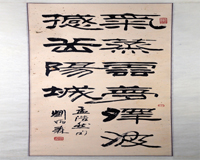 氣蒸雲夢澤波
撼岳陽城
孟浩然句